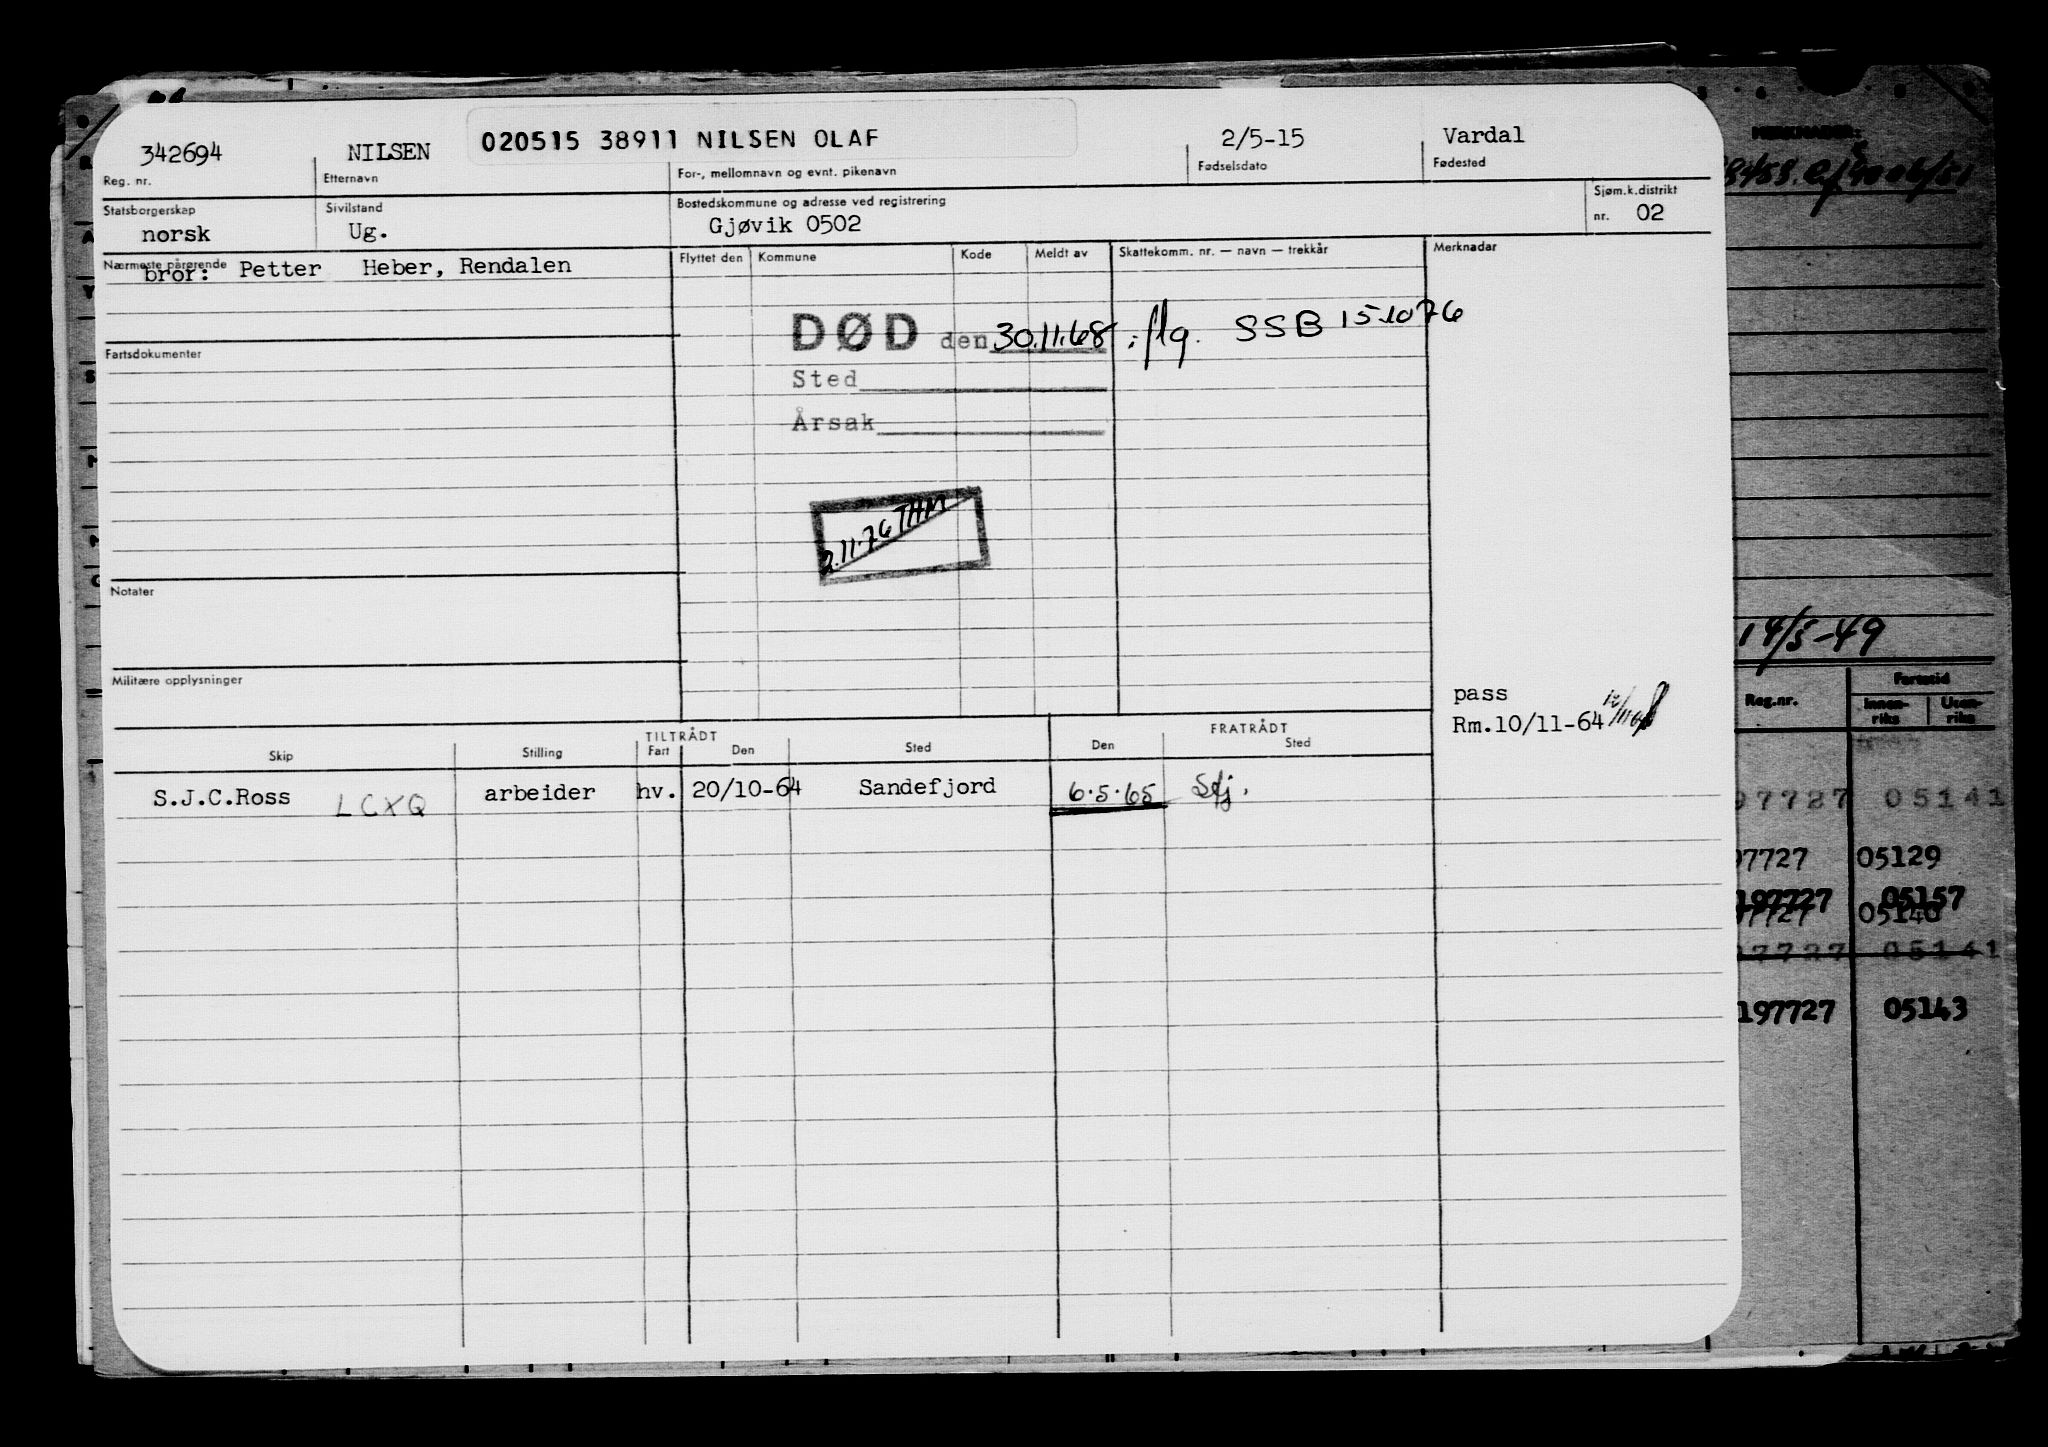 342694 NILSEN 020515 38911 NILSEN OLAF 2/5-15 Vardal
Reg. nr. Etternavn For-, mellomnavn og evnt. pikenavn Fødselsdato Fødested
Statsborgerskap Sivilstand Bostedskommune og adresse ved registrering Sjøm.k.distrikt
norsk Ug. Gjøvik 0502 nr. 02
Nærmeste pårørende Flyttet den Kommune Kode Meldt av Skattekomm. nr. — navn — trekkår Merknadar
bror: Petter Heber, Rendalen
DØD den 30.11.68 iflg. SSB 151076
Fartsdokumenter
Sted
Årsak
2.11.76 THM
Notater
Militære opplysninger
pass
Rm.10/11-64
TILTRÅDT FRATRÅDT
Skip Stilling Fart Den Sted Den Sted
S.J.C.Ross LCXQ arbeider hv. 20/10-64 Sandefjord 6.5.65 Sfj.
MERKNADER:
14/5-49
Reg.nr. Fartstid
Innen-riks Uten-riks
97727 05141
97727 05129
197727 05157
97727 05140
97727 05141
197727 05143